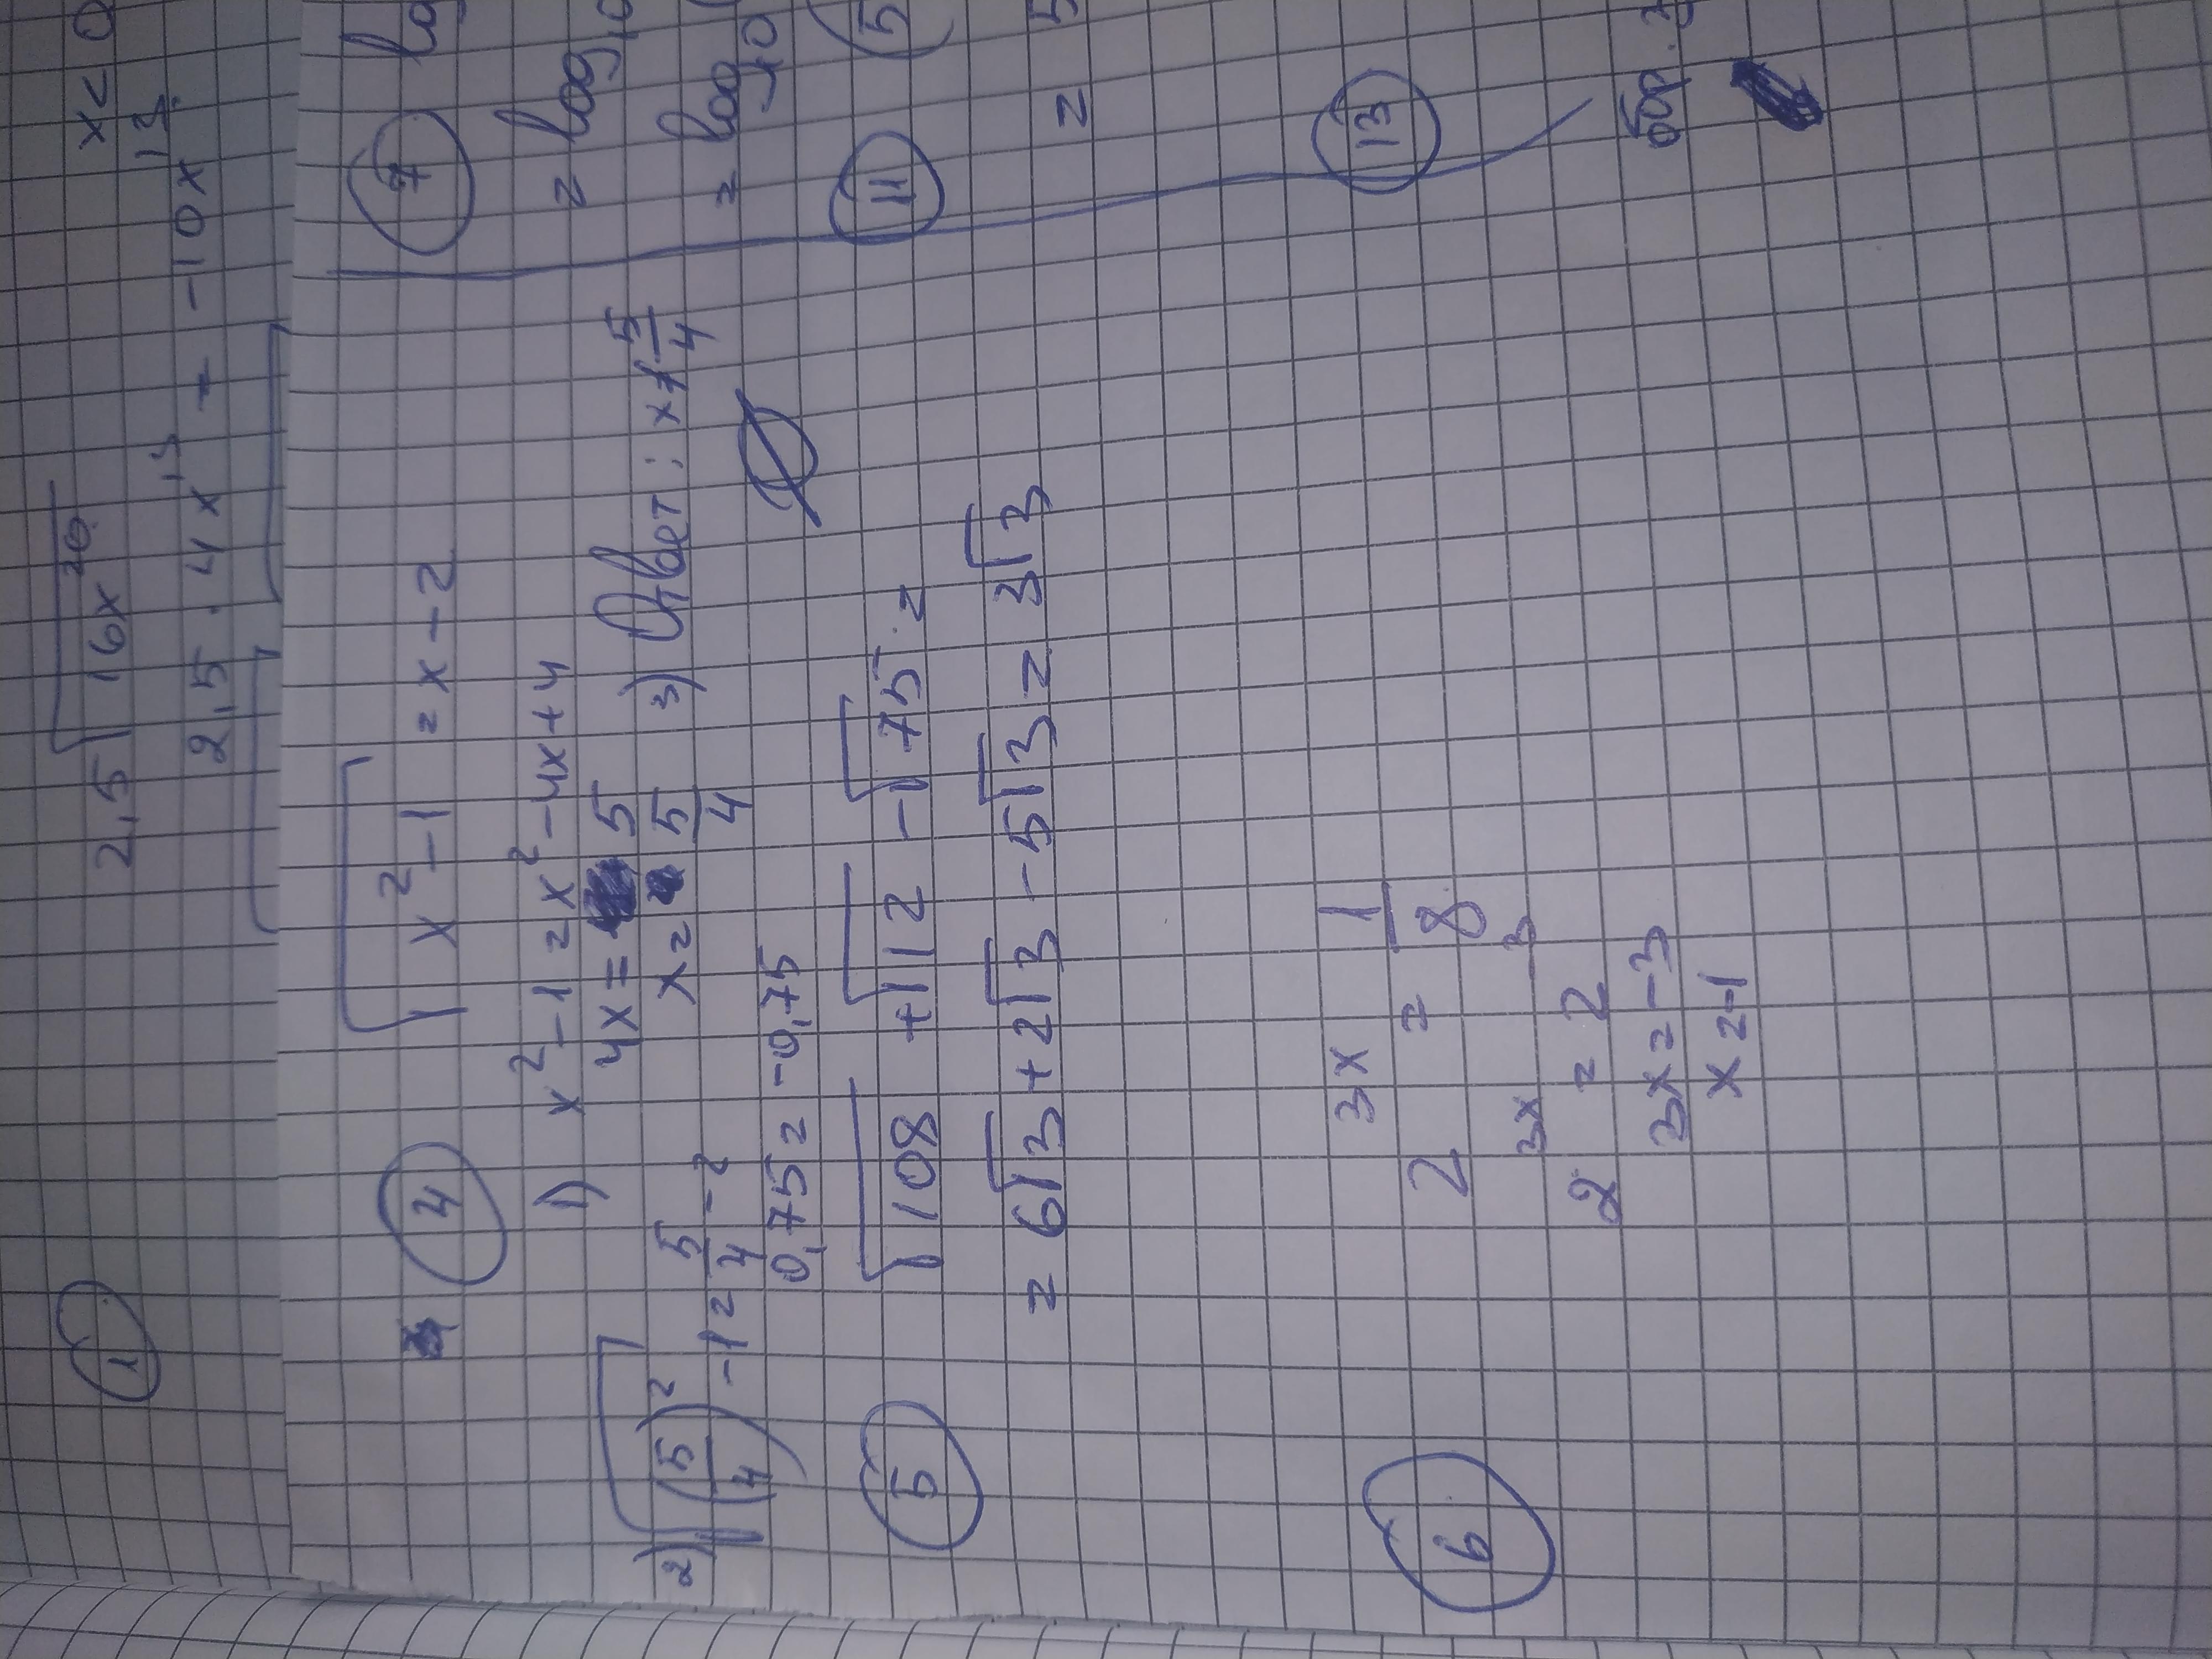 ① 2,5√16x²⁶ x<0
2,5 · 4x¹³ = -10x¹³
④ √x²-1 = x-2
1) x²-1=x²-4x+4
4x = 5
x = 5/4
2) √(5/4)²-1 = 5/4-2
0,75= -0,75
3) Ответ: x≠5/4
∅
⑤ √108 +√12 -√75 =
= 6√3 +2√3 -5√3 = 3√3
⑥ 2³ˣ = 1/8
2³ˣ = 2⁻³
3x = -3
x=-1
⑦
= log₁₀
= log₁₀
⑪ (5
= 5
⑬